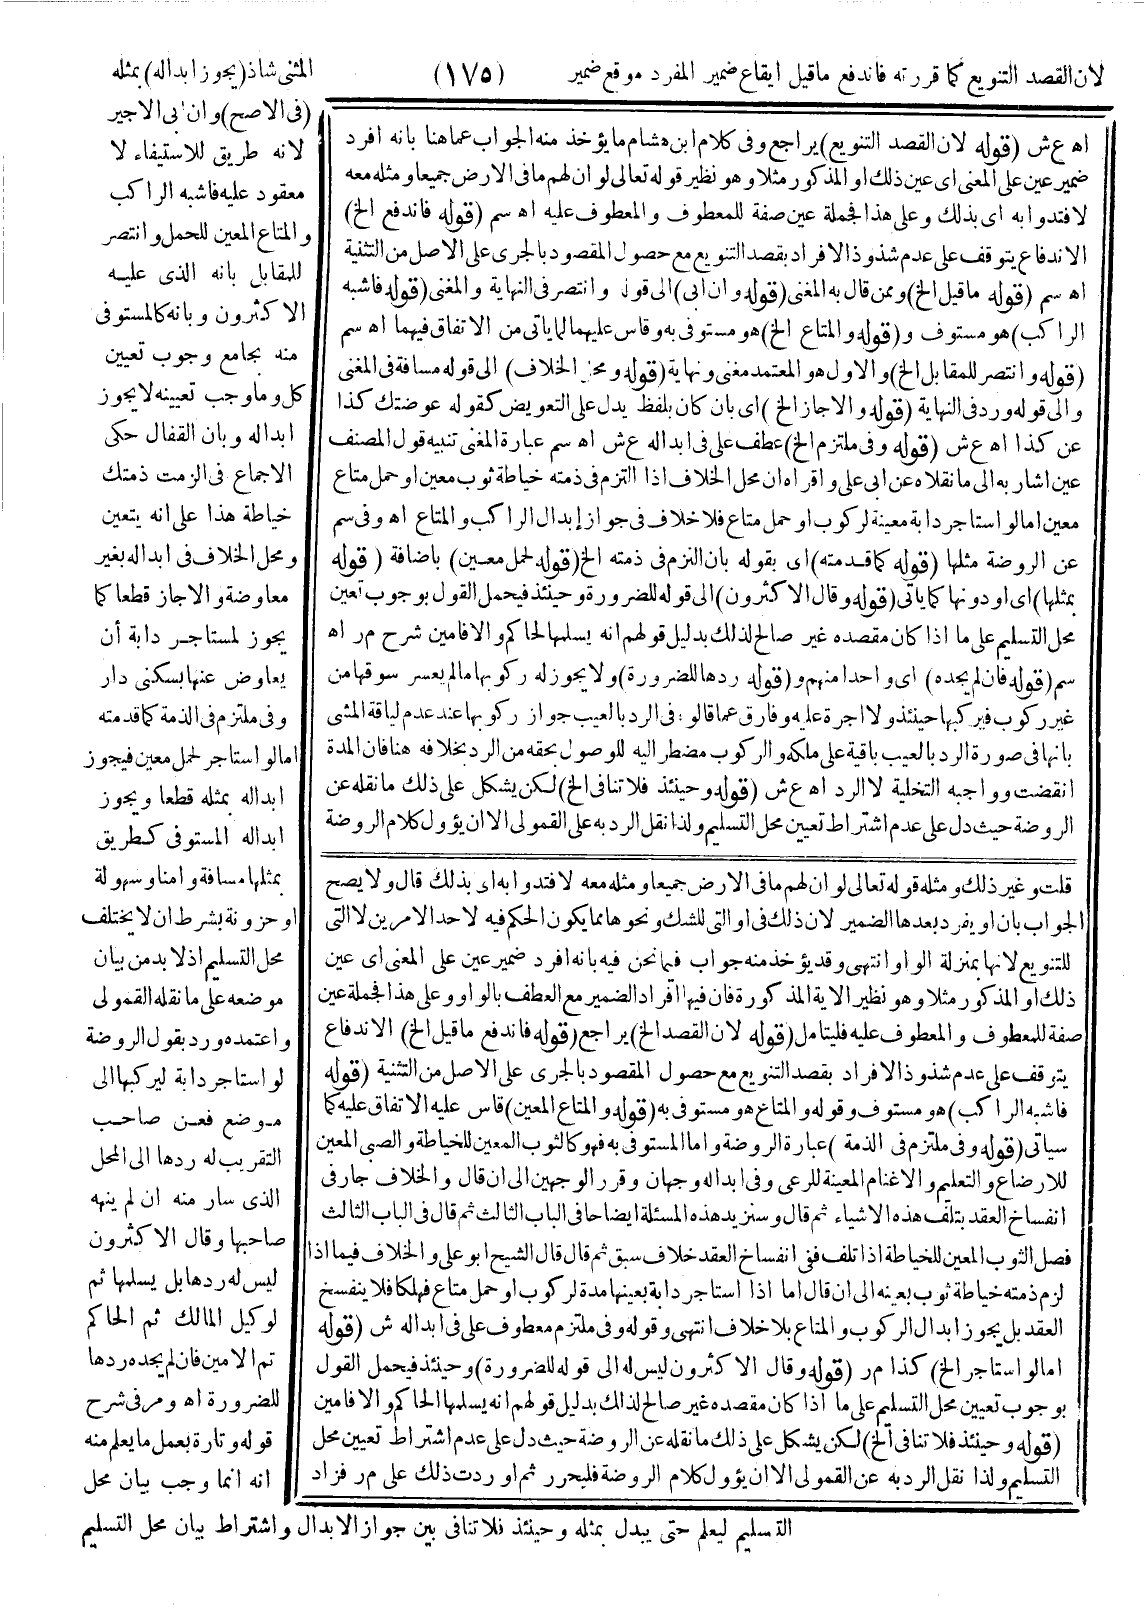 لان القصد التنويع كما قررته فاندفع ماقيل ايقاع ضمير المفرد موقع ضمير
(١٧٥)
المثنى شاذ (يجوز ابداله) بمثله
(فى الاصح) وان ابى الاجير
لانه طريق للاستيفاء لا
معقود عليه فاشبه الراكب
والمتاع المعين للحمل وانتصر
للمقابل بانه الذى عليه
الاكثرون وبانه كالمستوفى
منه بجامع وجوب تعيين
كل وما وجب تعيينه لا يجوز
ابداله وبان القفال حكى
الاجماع فى الزمت ذمتك
خياطة هذا على انه يتعين
ومحل الخلاف فى ابداله بغير
معاوضة والاجاز قطعا كما
يجوز لمستاجر دابة أن
يعاوض عنها بسكنى دار
وفى ملتزم فى الذمة كما قدمته
امالو استاجر لحمل معين فيجوز
ابداله بمثله قطعا ويجوز
ابداله المستوفى كطريق
بمثلها مسافة وامنا وسهولة
او حزونة بشرط ان لا يختلف
محل التسليم اذ لا بد من بيان
موضعه على ما نقله القمولى
واعتمده ورد بقول الروضة
لو استاجر دابة ليركبها الى
موضع فعن صاحب
التقريب له ردها الى المحل
الذى سار منه ان لم ينهه
صاحبها وقال الاكثرون
ليس له ردها بل يسلمها ثم
لوكيل المالك ثم الحاكم
ثم الامين فان لم يجده ردها
للضرورة اه ومر فى شرح
قوله وتارة بعمل ما يعلم منه
انه انما وجب بيان محل
التسليم ليعلم حتى يبدل بمثله وحينئذ فلا تنافى بين جواز الابدال واشتراط بيان محل التسليم
اه ع ش (قوله لان القصد التنويع) يراجع وفى كلام ابن هشام ما يؤخذ منه الجواب عما هنا بانه افرد
ضمير عين على المعنى اى عين ذلك او المذكور مثلا وهو نظير قوله تعالى لو ان لهم ما فى الارض جميعا ومثله معه
لافتدوا به اى بذلك وعلى هذا فجملة عين صفة للمعطوف والمعطوف عليه اه سم (قوله فاندفع الخ)
الاندفاع يتوقف على عدم شذوذ الافراد بقصد التنويع مع حصول المقصود بالجرى على الاصل من التثنية
اه سم (قوله ماقيل الخ) وممن قال به المغنى (قوله وان ابى) الى قوله وانتصر فى النهاية والمغنى (قوله فاشبه
الراكب) هو مستوف و (قوله والمتاع الخ) هو مستوفى به وقاس عليهما لما ياتى من الاتفاق فيهما اه سم
(قوله وانتصر للمقابل الخ) والاول هو المعتمد مغنى ونهاية (قوله ومحل الخلاف) الى قوله مسافة فى المغنى
والى قوله ورد فى النهاية (قوله والاجاز الخ) اى بان كان بلفظ يدل على التعويض كقوله عوضتك كذا
عن كذا اه ع ش (قوله وفى ملتزم الخ) عطف على فى ابداله ع ش اه سم عبارة المغنى تنبيه قول المصنف
عين اشار به الى ما نقلاه عن ابى على واقراه ان محل الخلاف اذا التزم فى ذمته خياطة ثوب معين او حمل متاع
معين امالو استاجر دابة معينة لركوب او حمل متاع فلا خلاف فى جواز إبدال الراكب والمتاع اه وفى سم
عن الروضة مثلها (قوله كما قدمته) اى بقوله بان التزم فى ذمته الخ (قوله لحمل معين) باضافة (قوله
بمثلها) اى او دونها كما ياتى (قوله وقال الاكثرون) الى قوله للضرورة وحينئذ فيحمل القول بوجوب تعين
محل التسليم على ما اذا كان مقصده غير صالح لذلك بدليل قولهم انه يسلمها الحاكم والا فامين شرح م ر اه
سم (قوله فان لم يجده) اى واحدا منهم و (قوله ردها للضرورة) ولا يجوز له ركوبها مالم يعسر سوقها من
غير ركوب فيركبها حينئذ ولا اجرة عليه وفارق عما قالوه فى الرد بالعيب جواز ركوبها عند عدم لياقة المشى
بانها فى صورة الرد بالعيب باقية على ملكه والركوب مضطر اليه للوصول بحقه من الرد بخلافه هنا فان المدة
انقضت وواجبه التخلية لا الرد اه ع ش (قوله وحينئذ فلا تنافى الخ) لكن يشكل على ذلك ما نقله عن
الروضة حيث دل على عدم اشتراط تعيين محل التسليم ولذا نقل الرد به على القمولى الا ان يؤول كلام الروضة
قلت وغير ذلك ومثله قوله تعالى لو ان لهم ما فى الارض جميعا ومثله معه لافتدوا به اى بذلك قال ولا يصح
الجواب بان او يفرد بعدها الضمير لان ذلك فى او التى للشك ونحوها مما يكون الحكم فيه لاحد الامرين لا التى
للتنويع لانها بمنزلة الواو انتهى وقد يؤخذ منه جواب فيما نحن فيه بانه افرد ضمير عين على المعنى اى عين
ذلك او المذكور مثلا وهو نظير الاية المذكورة فان فيها افراد الضمير مع العطف بالواو وعلى هذا فجملة عين
صفة للمعطوف والمعطوف عليه فليتامل (قوله لان القصد الخ) يراجع (قوله فاندفع ماقيل الخ) الاندفاع
يتوقف على عدم شذوذ الافراد بقصد التنويع مع حصول المقصود بالجرى على الاصل من التثنية (قوله
فاشبه الراكب) هو مستوف وقوله والمتاع هو مستوفى به (قوله والمتاع المعين) قاس عليه الاتفاق عليه كما
سياتى (قوله وفى ملتزم فى الذمة) عبارة الروضة واما المستوفى به فهو كالثوب المعين للخياطة والصبى المعين
للارضاع والتعليم والاغنام المعينة للرعى وفى ابداله وجهان وقرر الوجهين الى ان قال والخلاف جار فى
انفساخ العقد بتلف هذه الاشياء ثم قال وسنزيد هذه المسئلة ايضاحا فى الباب الثالث ثم قال فى الباب الثالث
فصل الثوب المعين للخياطة اذا تلف ففى انفساخ العقد خلاف سبق ثم قال قال الشيخ ابو على والخلاف فيما اذا
لزم ذمته خياطة ثوب بعينه الى ان قال اما اذا استاجر دابة بعينها مدة لركوب او حمل متاع فهلكا فلا ينفسخ
العقد بل يجوز ابدال الركوب والمتاع بلا خلاف انتهى وقوله وفى ملتزم معطوف على فى ابداله ش (قوله
امالو استاجر الخ) كذا م ر (قوله وقال الاكثرون ليس له الى قوله للضرورة) وحينئذ فيحمل القول
بوجوب تعيين محل التسليم على ما اذا كان مقصده غير صالح لذلك بدليل قولهم انه يسلمها الحاكم والا فامين
(قوله وحينئذ فلا تنافى الخ) لكن يشكل على ذلك ما نقله عن الروضة حيث دل على عدم اشتراط تعيين محل
التسليم ولذا نقل الرد به عن القمولى الا ان يؤول كلام الروضة فليحرر ثم اوردت ذلك على م ر فزاد